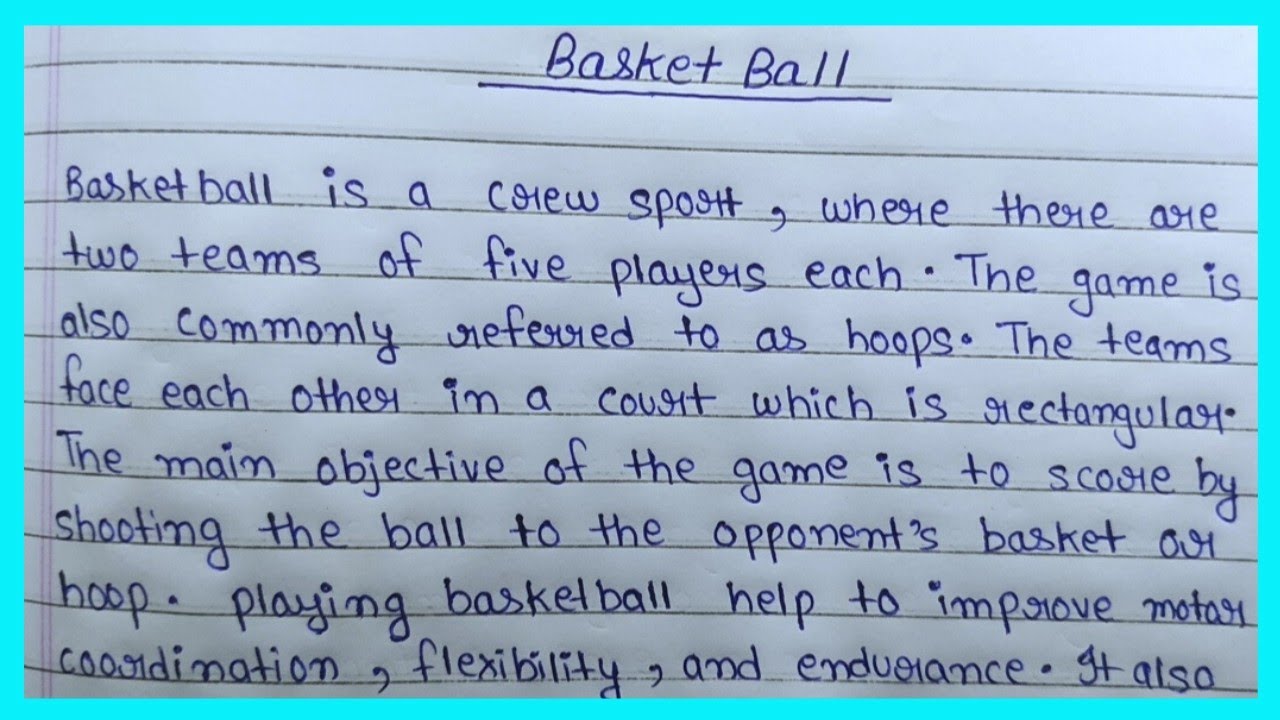 Basket Ball
Basketball is a crew sport, where there are
two teams of five players each. The game is
also commonly referred to as hoops. The teams
face each other in a court which is rectangular.
The main objective of the game is to score by
shooting the ball to the opponent's basket or
hoop. playing basketball help to improve motar
coordination, flexibility, and endurance. It also